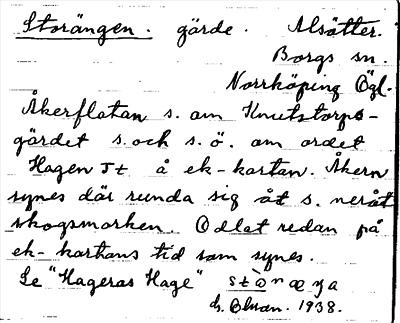 Storängen. gärde. Alsätter.
Borgs sn.
Norrköping Ögl.
Åkerflatan s. om Knutstorps-
gärdet s. och s.ö. om ordet
Hagen å ek-kartan. Åkern
synes där runda sig åt s. neråt
skogsmarken. Odlat redan på
ek-kartans tid som synes.
Se "Hageras Hage"
1938.